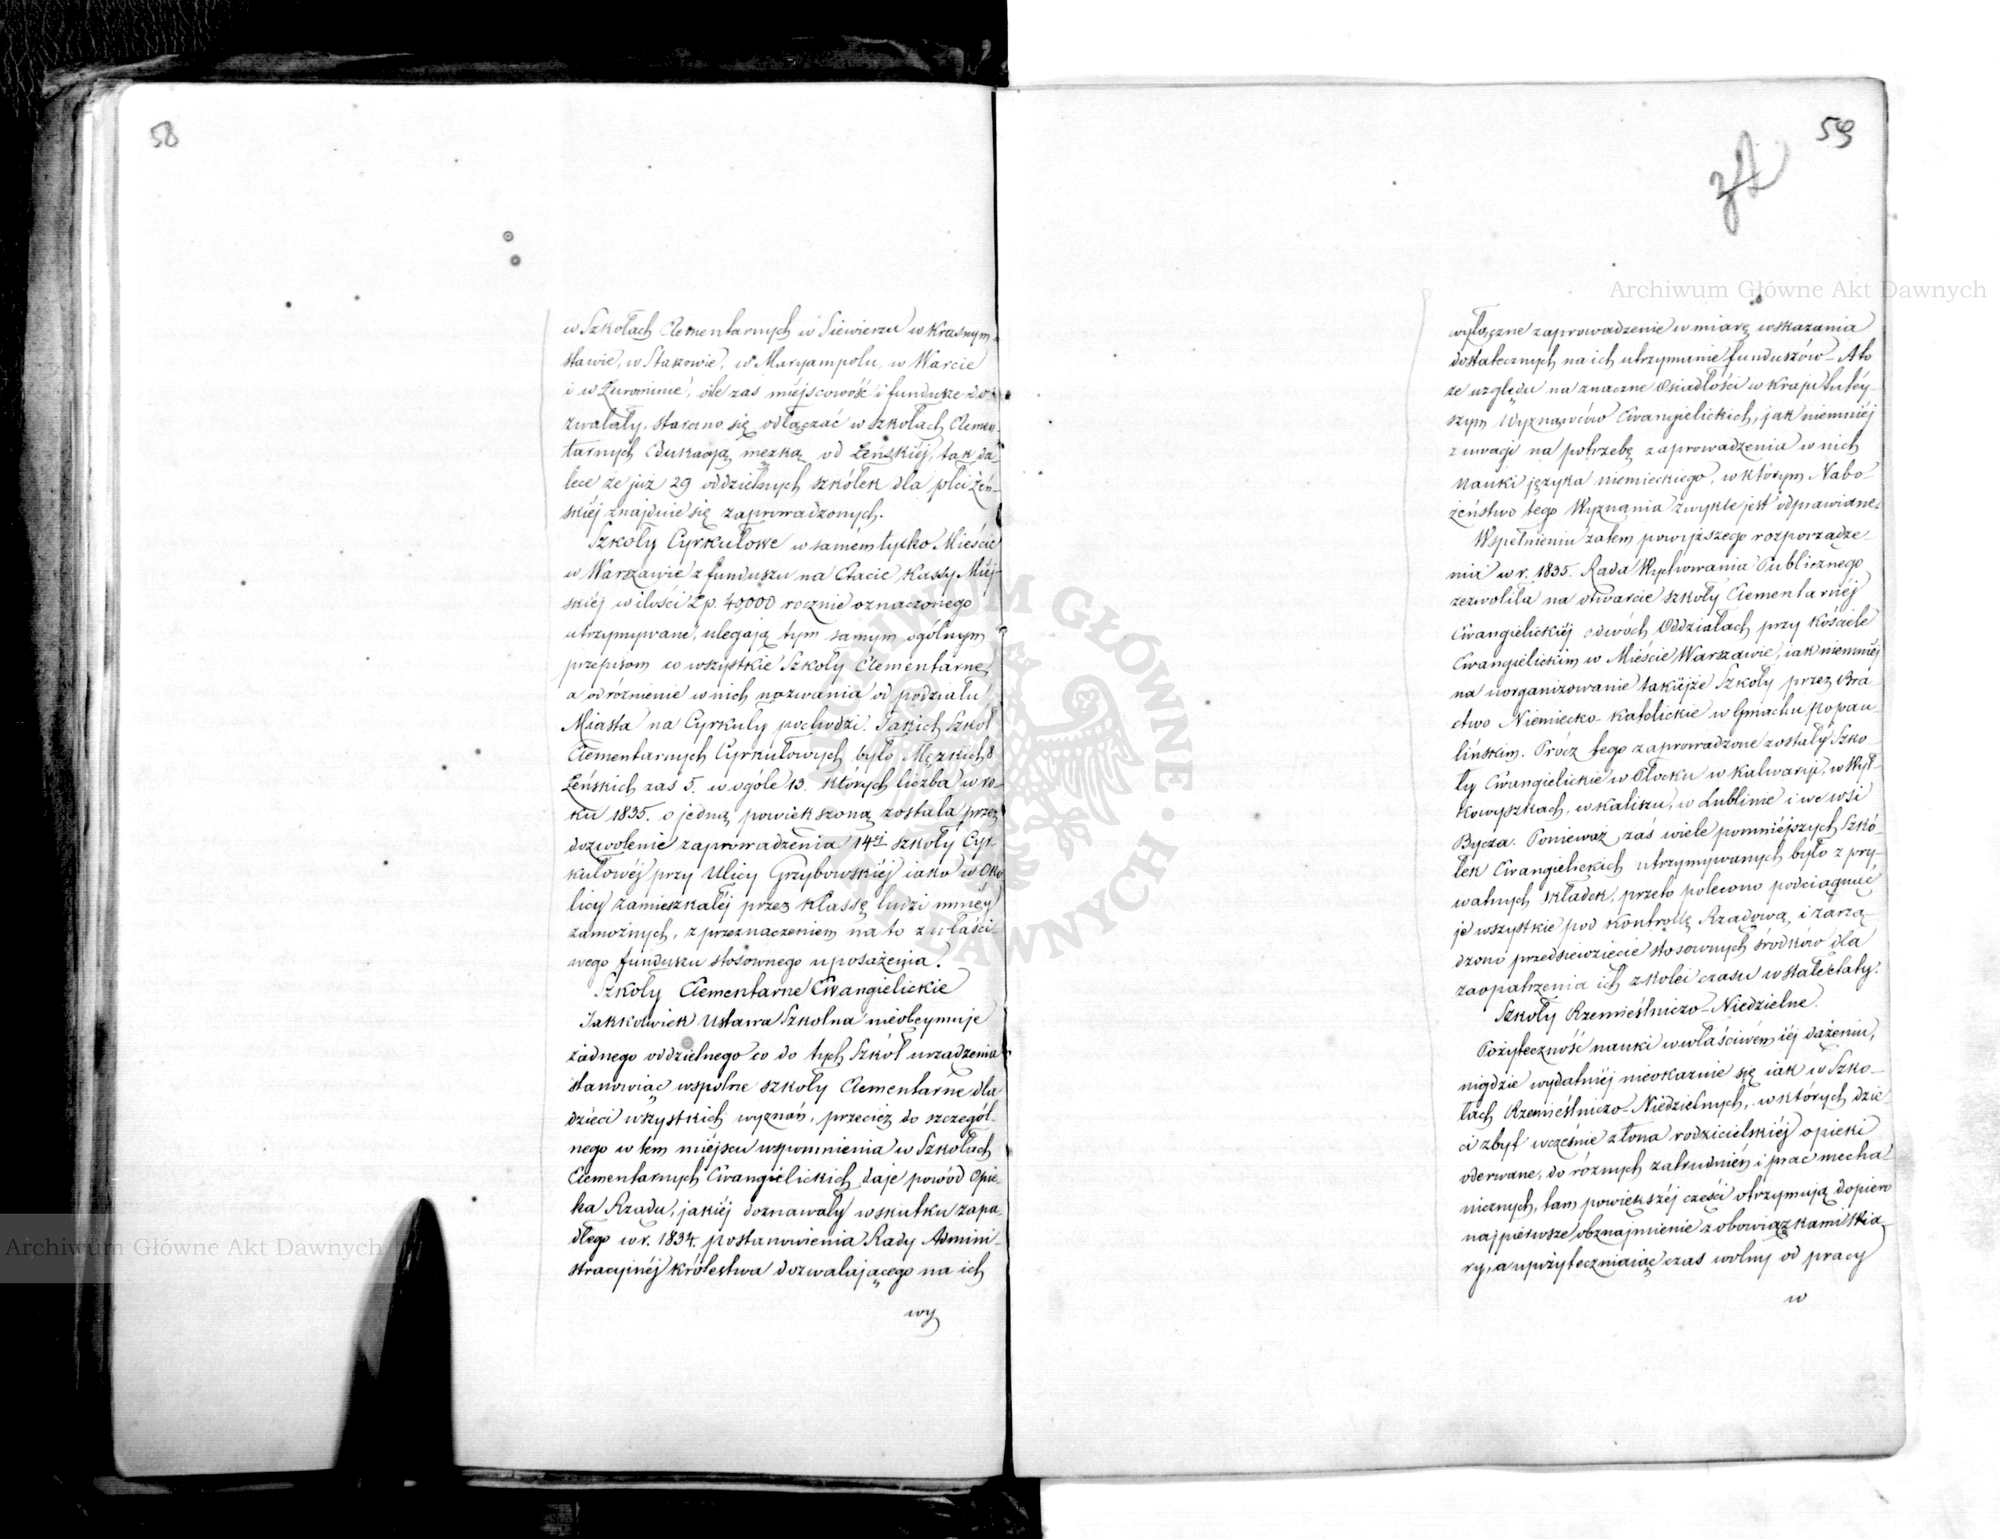 58
w Szkołach Elementarnych w Siewierzu w Krasnym-
stawie, w Stakowie, w Maryampolu, w Warcie
i w Żurominie, ile zas miéjscowość i fundusze do-
zwalały, starano się odłączać w szkołach Elemen-
tarnych Edukacją męzką od Żeńskiéj, tak da-
lece że już 29 oddzielnych szkółek dla płci żeń-
skiéj znajduie się zaprowadzonych.
Szkoły Cyrkułowe w samém tylko Mieście
w Warszawie z funduszu na Etacie Kassy Miéj-
skiéj w ilości Zp. 40,000 rocznie oznaczonego
utrzymywane, ulegają tym samym ogólnym
przepisom co wszystkie Szkoły Elementarne,
a odróżnienie w nich nazwania od podziału
Miasta na Cyrkuły pochodzi. Takich Szkół
Elementarnych Cyrkułowych było Męzkich 8
Żeńskich zaś 5. w ogóle 13. których liczba w ro-
ku 1835. o jedną powiększoną została przez
dozwolenie zaprowadzenia 14éj szkoły Cyr-
kułowéj przy Ulicy Grzybowskiéj iako w oko
licy zamieszkałéj przez klassę ludzi mniéy
zamożnych, z przeznaczeniem na to z właści-
wego funduszu stosownego uposażenia.
Szkoły Elementarne Ewangielickie
Jakkolwiek Ustawa Szkolna nieobeymuje
żadnego oddzielnego co do tych Szkół urządzenia
stanowiąc wspólne szkoły Elementarne dla
dzieci wszystkich wyznań, przecież do szczegól-
nego w tem miéjscu wspomnienia w Szkołach
Elementarnych Ewangielickich daje powód Opie-
ka Rządu, jakiéj doznawały w skutku zapa-
dłego w r. 1834. postanowienia Rady Admini-
stracyinéj Królestwa dozwalającego na ich
wy
59
wyłączne zaprowadzenie w miarę wskazania
dostatecznych na ich utrzymanie funduszów - A to
ze względu na znaczne Osiadłości w Kraju tutéy-
szym Wyznawców Ewangielickich, jak niemniéj
z uwagi na potrzebę zaprowadzenia w nich
nauki języka niemieckiego, w którym Nabo-
żeństwo tego Wyznania zwykle jest odprawiane.
W spełnieniu zatem powyższego rozporządze
nia w r. 1835. Rada Wychowania Publicznego
zezwoliła na otwarcie szkoły Elementarnéj
Ewangielickiéj o dwóch Oddziałach przy Kościele
Ewangielickim w Mieście Warszawie, iak niemniéj
na uorganizowanie takiejże Szkoły przez Bra-
ctwo Niemiecko-Katolickie w Gmachu Popau-
lińskim. Prócz tego zaprowadzone zostały Szko-
ły Ewangielickie w Płocku w Kalwaryi, w Wył-
kowyszkach, w Kaliszu, w Lublinie i we wsi
Bycza. Ponieważ zaś wiele pomniéjszych Szkó-
łek Ewangielickich utrzymywanych było z pry-
watnych składek, przeto polecono podciągnąć
je wszystkie pod Kontrollę Rządową, i zarzą-
dzono przedsięwzięcie stosownych środków dla
zaopatrzenia ich z kolei czasu w stałe etaty.
Szkoły Rzemieślniczo-Niedzielne.
Pożyteczność nauki w właściwém iéj dążeniu,
nigdzie wydatniéj nieokazuie się iak w Szko-
łach Rzemieślniczo-Niedzielnych, w których dzie
ci zbyt wcześnie z łona rodzicielskiéj opieki
oderwane, do różnych zatrudnień i prac mecha-
nicznych, tam powiększéj części otrzymują dopiero
najpierwsze obznajmienie z obowiązkami Wia-
ry, a upożyteczniaiąc czas wolny od pracy
w
Archiwum Główne Akt Dawnych
Archiwum Główne Akt Dawnych
ARCHIWUM GŁÓWNE AKT DAWNYCH